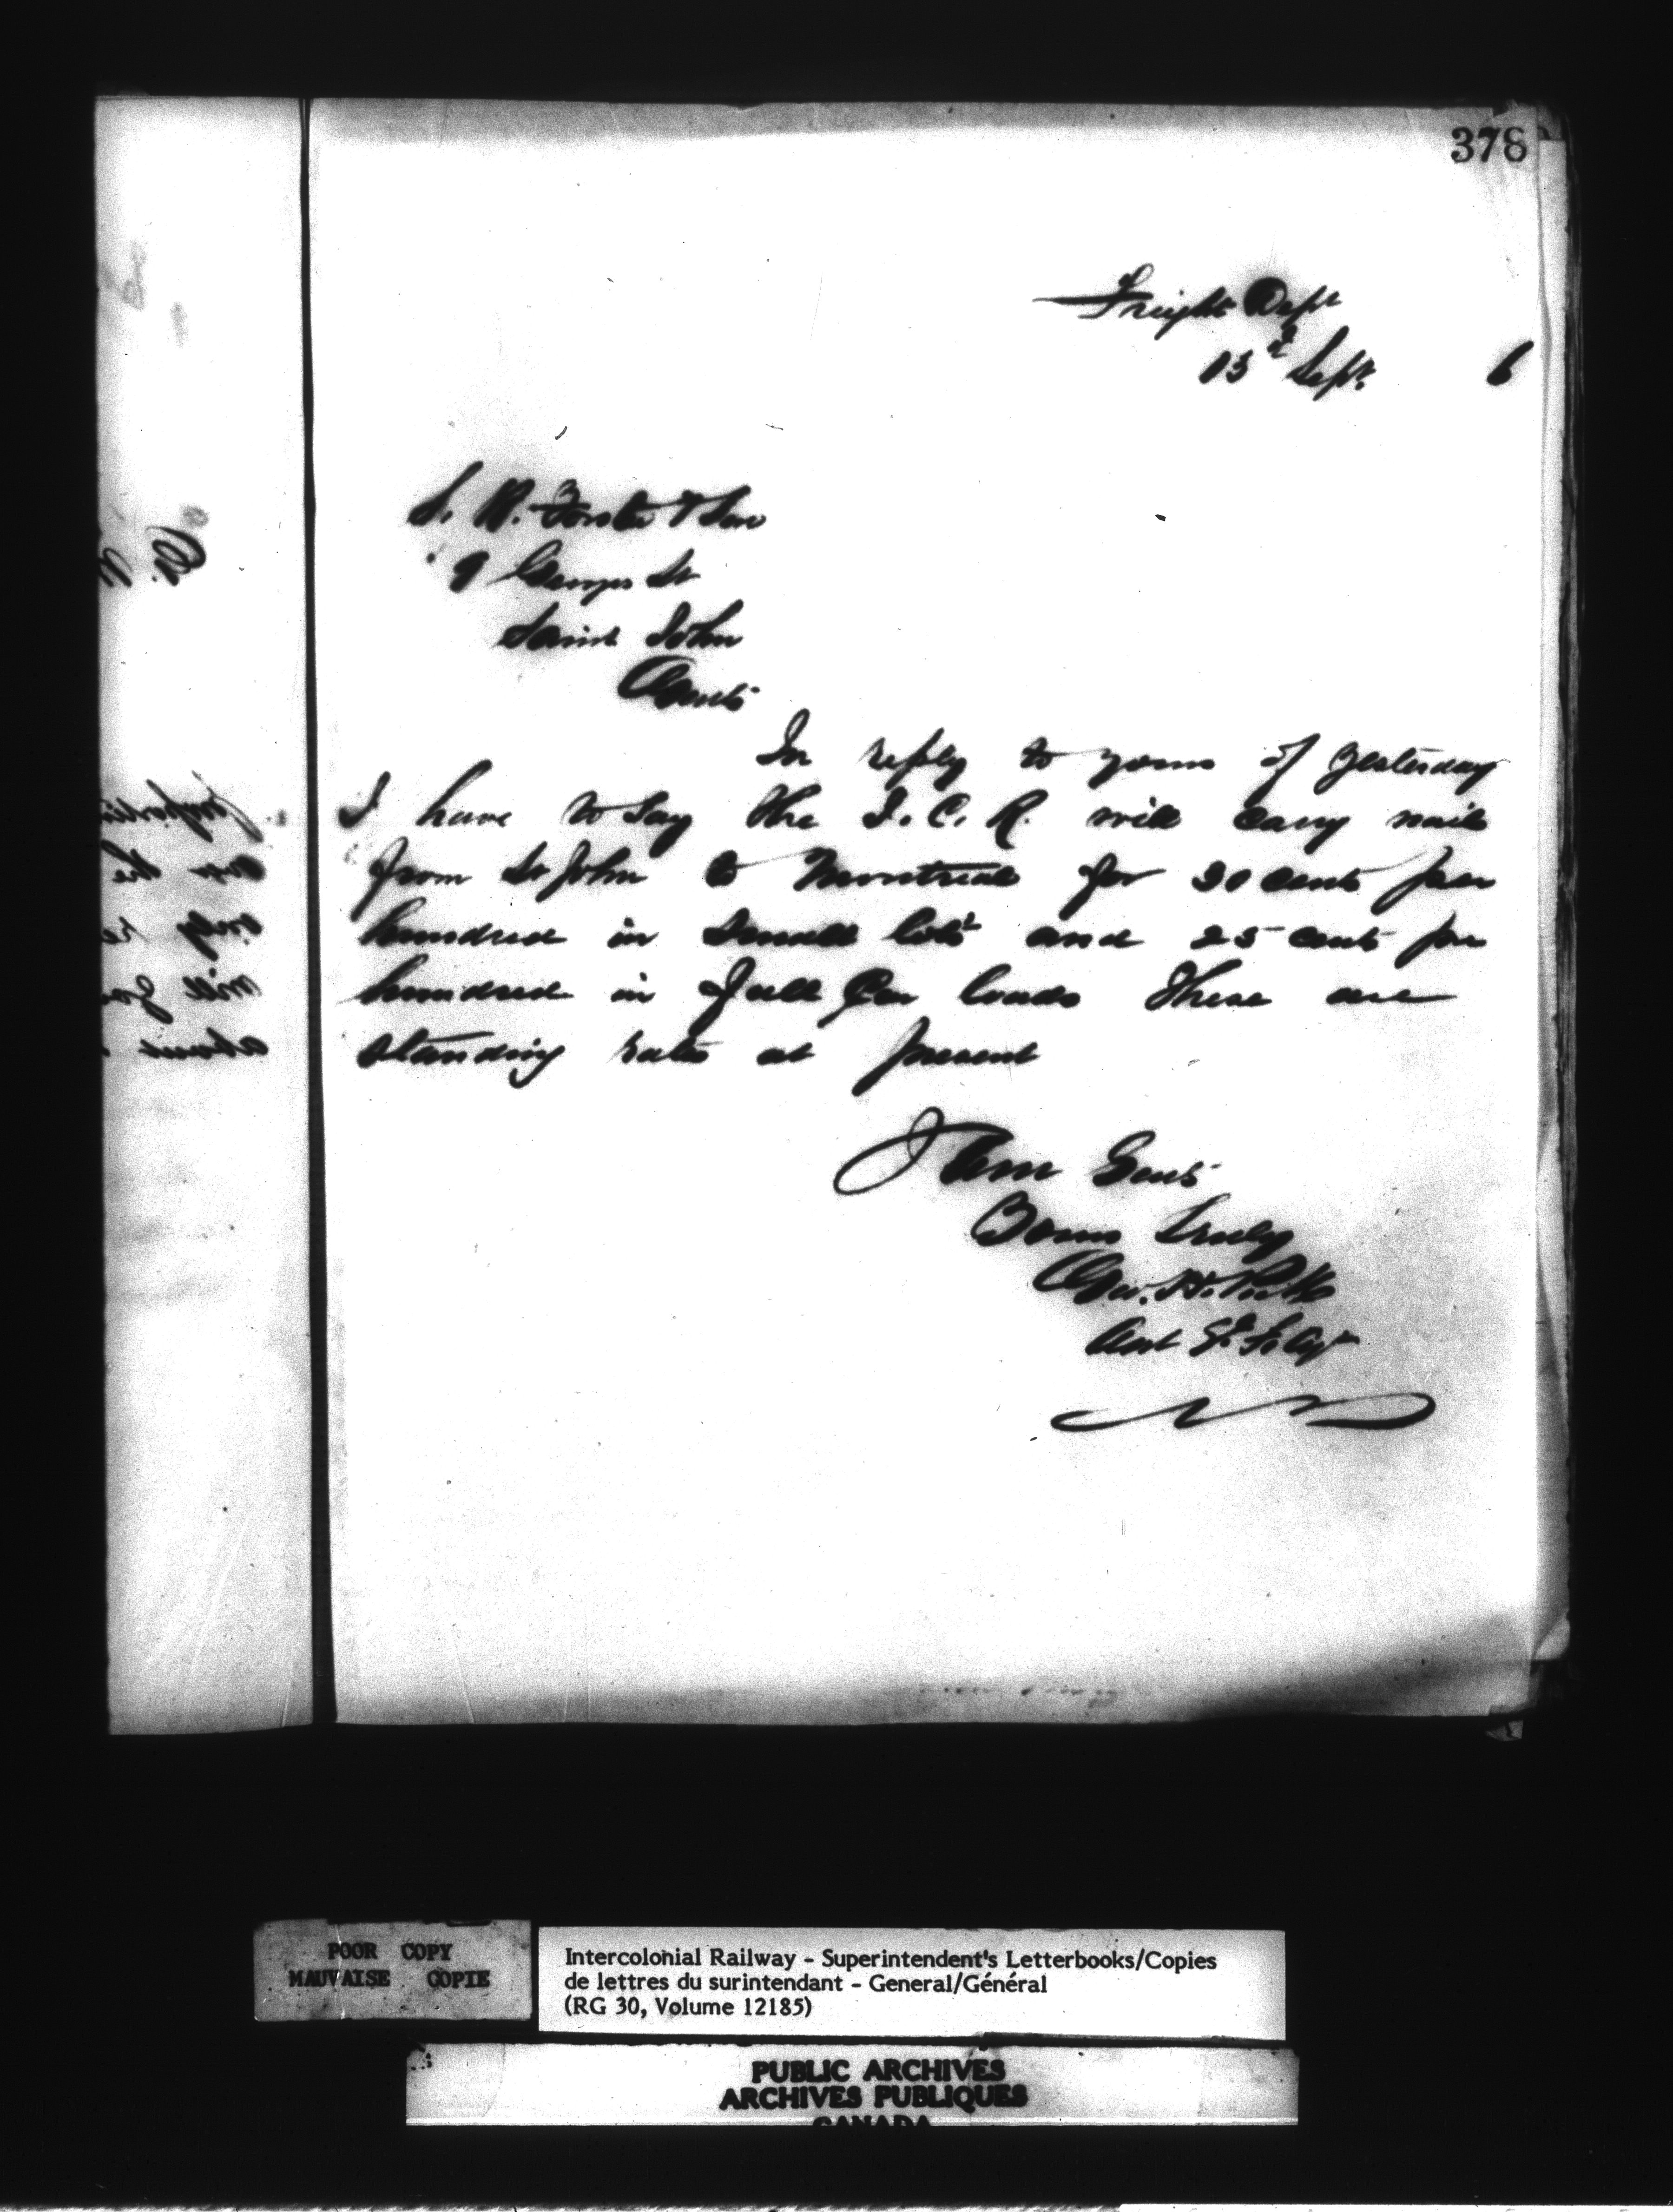 378
Freight Dept
13th Sept. 6
S. R. Foster & Son
9 Georges St
Saint John
Gents
In reply to yours of yesterday
I have to say the I. C. R. will carry nails
from St John to Montreal for 30 cents per
hundred in small lots and 25 cents per
hundred in full Car loads These are
standing rates at present
I am Gents
Yours Truly
Geo. H.
POOR COPY
MAUVAISE COPIE
Intercolonial Railway - Superintendent's Letterbooks/Copies
de lettres du surintendant - General/Général
(RG 30, Volume 12185)
PUBLIC ARCHIVES
ARCHIVES PUBLIQUES
CANADA